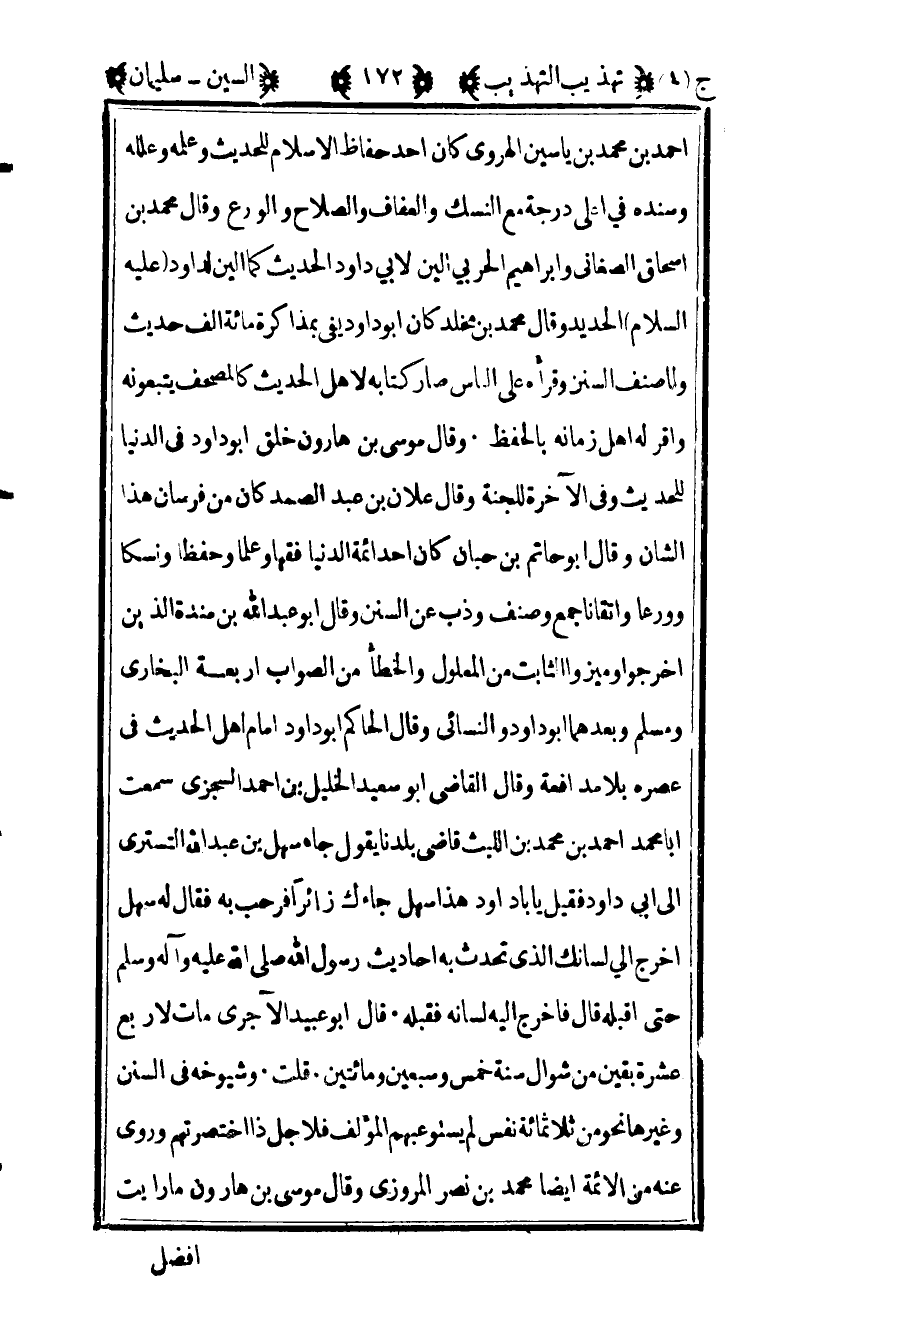 ج (٤) ﴿ تهذيب التهذيب ﴾ ﴿ ١٧٢ ﴾ ﴿ السين - سليمان ﴾
احمد بن محمد بن ياسين الهروى كان احد حفاظ الاسلام للحديث وعلمه وعلله
وسنده في اعلى درجة مع النسك والعفاف والصلاح والورع وقال محمد بن
اسحاق الصغانى وابراهيم الحربي الين لابي داود الحديث كما الين لداود (عليه
السلام) الحديد وقال محمد بن مخلد كان ابو داود يفى بمذاكرة مائة الف حديث
ولما صنف السنن وقرأه على الناس صار كتابه لاهل الحديث كالمصحف يتبعونه
واقر له اهل زمانه بالحفظ ٠ وقال موسى بن هارون خلق ابو داود فى الدنيا
للحديث وفى الآخرة للجنة وقال علان بن عبد الصمد كان من فرسان هذا
الشان وقال ابو حاتم بن حبان كان احد ائمة الدنيا فقها وعلما وحفظا ونسكا
وورعا واتقانا جمع وصنف وذب عن السنن وقال ابو عبد الله بن مندة الذين
اخرجوا وميزوا الثابت من المعلول والخطأ من الصواب اربعة البخارى
ومسلم وبعدهما ابو داود والنسائى وقال الحاكم ابو داود امام اهل الحديث فى
عصره بلا مدافعة وقال القاضى ابو سعيد الخليل بن احمد السجزى سمعت
ابا محمد احمد بن محمد بن الليث قاضى بلدنا يقول جاء سهل بن عبد الله التسترى
الى ابى داود فقيل يا باداود هذا سهل جاءك زائرآ فرحب به فقال له سهل
اخرج الي لسانك الذى تحدث به احاديث رسول الله صلى الله عليه وآله وسلم
حتى اقبله قال فاخرج اليه لسانه فقبله ٠ قال ابو عبيد الآجرى مات لاربع
عشرة بقين من شوال سنة خمس وسبعين ومائتين ٠ قلت ٠ وشيوخه فى السنن
وغيرها نحو من ثلاثمائة نفس لم يستوعبهم المؤلف فلاجل ذا اختصرتهم وروى
عنه من الائمة ايضا محمد بن نصر المروزى وقال موسى بن هارون ما رايت
افضل